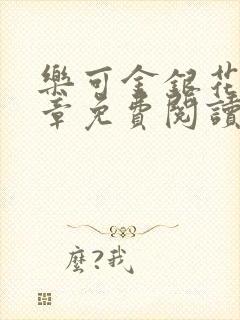 樂可金銀花
章免費閱讀
麼?我